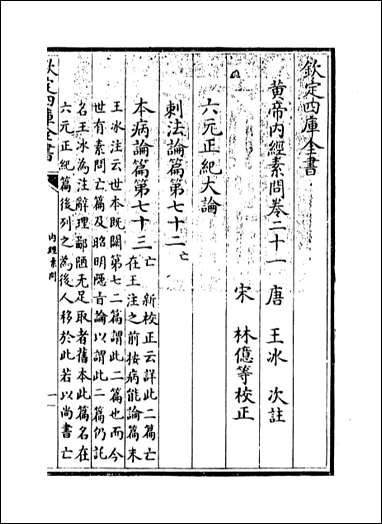 欽定四庫全書
黃帝內經素問卷二十一　唐　王冰　次註
宋　林億等校正
六元正紀大論
刺法論篇第七十二亡
本病論篇第七十三亡
新校正云詳此二篇亡
在王注之前按病能論篇末
王冰注云世本既闕第七二篇謂此二篇也而今
世有素問亡篇及昭明隱旨論以謂此二篇仍託
名王冰為注辭理鄙陋無足取者舊本此篇名在
六元正紀篇後列之為後人移於此若以尚書亡
欽定四庫全書
內經素問
一